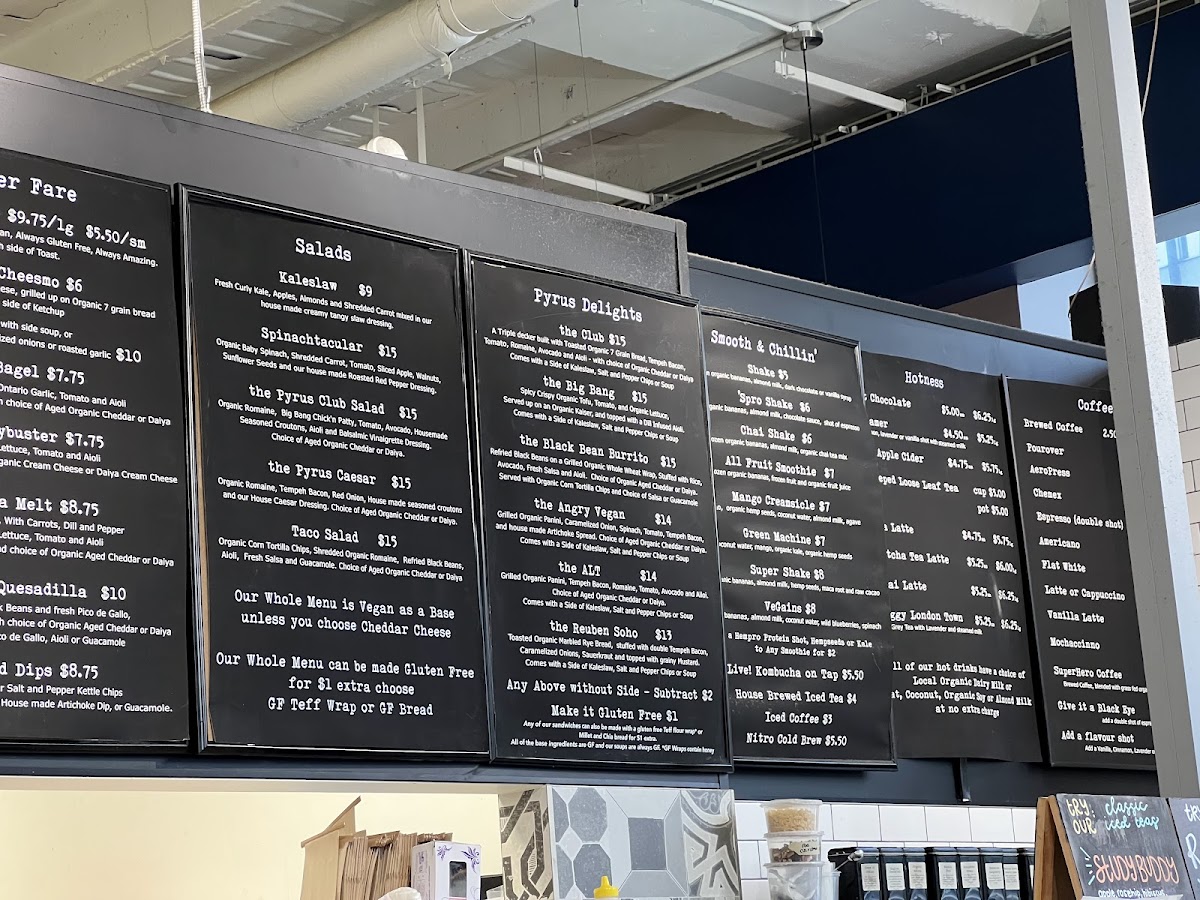 er Fare
$9.75/lg $5.50/sm
an, Always Gluten Free, Always Amazing.
h side of Toast.
Cheesmo $6
ese, grilled up on Organic 7 grain bread
side of Ketchup
with side soup, or
ized onions or roasted garlic $10
Bagel $7.75
Ontario Garlic, Tomato and Aioli
h choice of Aged Organic Cheddar or Daiya
ybuster $7.75
Lettuce, Tomato and Aioli
ganic Cream Cheese or Daiya Cream Cheese
a Melt $8.75
With Carrots, Dill and Pepper
Lettuce, Tomato and Aioli
d choice of Aged Organic Cheddar or Daiya
Quesadilla $10
k Beans and fresh Pico de Gallo,
h choice of Organic Aged Cheddar or Daiya
co de Gallo, Aioli or Guacamole
d Dips $8.75
r Salt and Pepper Kettle Chips
House made Artichoke Dip, or Guacamole.
Salads
Kaleslaw $9
Fresh Curly Kale, Apples, Almonds and Shredded Carrot mixed in our
house made creamy tangy slaw dressing.
Spinachtacular $15
Organic Baby Spinach, Shredded Carrot, Tomato, Sliced Apple, Walnuts,
Sunflower Seeds and our house made Roasted Red Pepper Dressing.
the Pyrus Club Salad $15
Organic Romaine, Big Bang Chick'n Patty, Tomato, Avocado, Housemade
Seasoned Croutons, Aioli and Balsalmic Vinaigrette Dressing.
Choice of Aged Organic Cheddar or Daiya.
the Pyrus Caesar $15
Organic Romaine, Tempeh Bacon, Red Onion, House made seasoned croutons
and our House Caesar Dressing. Choice of Aged Organic Cheddar or Daiya.
Taco Salad $15
Organic Corn Tortilla Chips, Shredded Organic Romaine, Refried Black Beans,
Aioli, Fresh Salsa and Guacamole. Choice of Aged Organic Cheddar or Daiya.
Our Whole Menu is Vegan as a Base
unless you choose Cheddar Cheese
Our Whole Menu can be made Gluten Free
for $1 extra choose
GF Teff Wrap or GF Bread
Pyrus Delights
the Club $15
A Triple decker built with Toasted Organic 7 Grain Bread, Tempeh Bacon,
Tomato, Romaine, Avocado and Aioli - with choice of Organic Cheddar or Daiya
Comes with a Side of Kaleslaw, Salt and Pepper Chips or Soup
the Big Bang $15
Spicy Crispy Organic Tofu, Tomato and Organic Lettuce,
Served up on an Organic Kaiser, and topped with a Dill Infused Aioli.
Comes with a Side of Kaleslaw, Salt and Pepper Chips or Soup
the Black Bean Burrito $15
Refried Black Beans on a Grilled Organic Whole Wheat Wrap, Stuffed with Rice,
Avocado, Fresh Salsa and Aioli. Choice of Organic Aged Cheddar or Daiya.
Served with Organic Corn Tortilla Chips and Choice of Salsa or Guacamole
the Angry Vegan $14
Grilled Organic Panini, Caramelized Onion, Spinach, Tomato, Tempeh Bacon,
and house made Artichoke Spread. Choice of Aged Organic Cheddar or Daiya.
Comes with a Side of Kaleslaw, Salt and Pepper Chips or Soup
the ALT $14
Grilled Organic Panini, Tempeh Bacon, Romaine, Tomato, Avocado and Aioi.
Choice of Aged Organic Cheddar or Daiya.
Comes with a Side of Kaleslaw, Salt and Pepper Chips or Soup
the Reuben Soho $13
Toasted Organic Marbled Rye Bread, stuffed with double Tempeh Bacon,
Caramelized Onions, Sauerkraut and topped with grainy Mustard.
Comes with a Side of Kaleslaw, Salt and Pepper Chips or Soup
Any Above without Side - Subtract $2
Make it Gluten Free $1
Any of our sandwiches can also be made with a gluten free Teff flour wrap* or
Millet and Chia bread for $1 extra.
All of the base ingredients are GF and our soups are always GF. *GF Wraps contain honey
Smooth & Chillin'
Shake $5
organic bananas, almond milk, dark chocolate or vanilla syrup
'Spro Shake $6
ganic bananas, almond milk, chocolate sauce, shot of espresso
Chai Shake $6
ozen organic bananas, almond milk, organic chai tea mix
All Fruit Smoothie $7
ozen organic bananas, frozen fruit and organic fruit juice
Mango Creamsicle $7
organic mango, seeds, coconut water, almond milk, agave
Green Machine $7
conut water, mango, organic kale, organic hemp seeds
Super Shake $8
nic bananas, almond milk, hemp seeds, maca root and raw cacao
VeGains $8
bananas, almond milk, coconut water, wild blueberries, spinach
a Hempro Protein Shot, Hempseeds or Kale
to Any Smoothie for $2
Live! Kombucha on Tap $5.50
House Brewed Iced Tea $4
Iced Coffee $3
Nitro Cold Brew $5.50
Hotness
Chocolate $5.00 $6.25
amer $4.50 $5.25
lavender or vanilla shot with steamed milk
Apple Cider $4.75 $5.75
eped Loose Leaf Tea cup $1.00
pot $5.00
a Latte $4.75 $5.75
tcha Tea Latte $5.25 $6.00
ai Latte $5.25 $6.25
ggy London Town $5.25 $6.25
Grey Tea with Lavender and steamed milk
ll of our hot drinks have a choice of
Local Organic Dairy Milk or
t, Coconut, Organic Soy or Almond Milk
at no extra charge
Coffee
Brewed Coffee 2.50
Pourover
AeroPress
Chemex
Espresso (double shot)
Americano
Flat White
Latte or Cappuccino
Vanilla Latte
Mochaccinno
SuperHero Coffee
Brewed Coffee, blended with grass fed orga
Give it a Black Eye
add a double shot of esp
Add a flavour shot
Add a Vanilla, Cinnamon, Lavender
TRY OUR
classic iced teas
STUDY BUDDY
apple rosehip, hibiscus